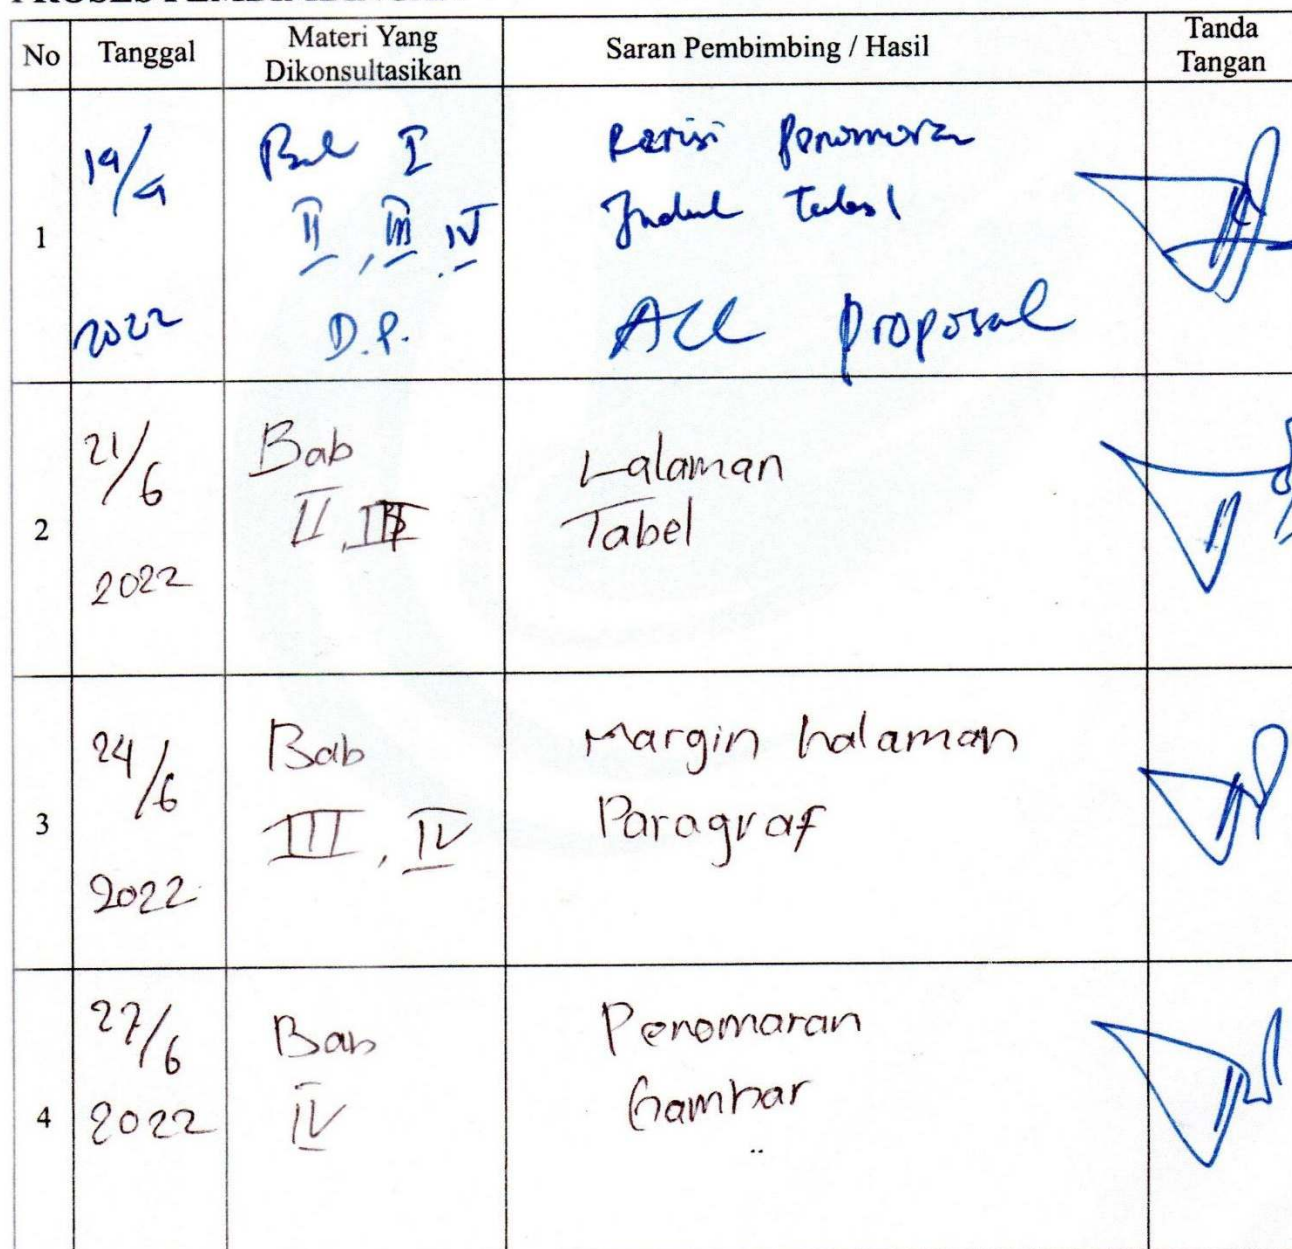 No Tanggal Materi Yang Dikonsultasikan Saran Pembimbing / Hasil Tanda Tangan
1
19/4
2022
Bab I
II, III, IV
D.P.
Revisi Penomoran
Judul Tabel
ACC proposal
2
21/6
2022
Bab
II, III
Halaman
Tabel
3
24/6
2022
Bab
III, IV
Margin halaman
Paragraf
4
27/6
2022
Bab
IV
Penomoran
Gambar